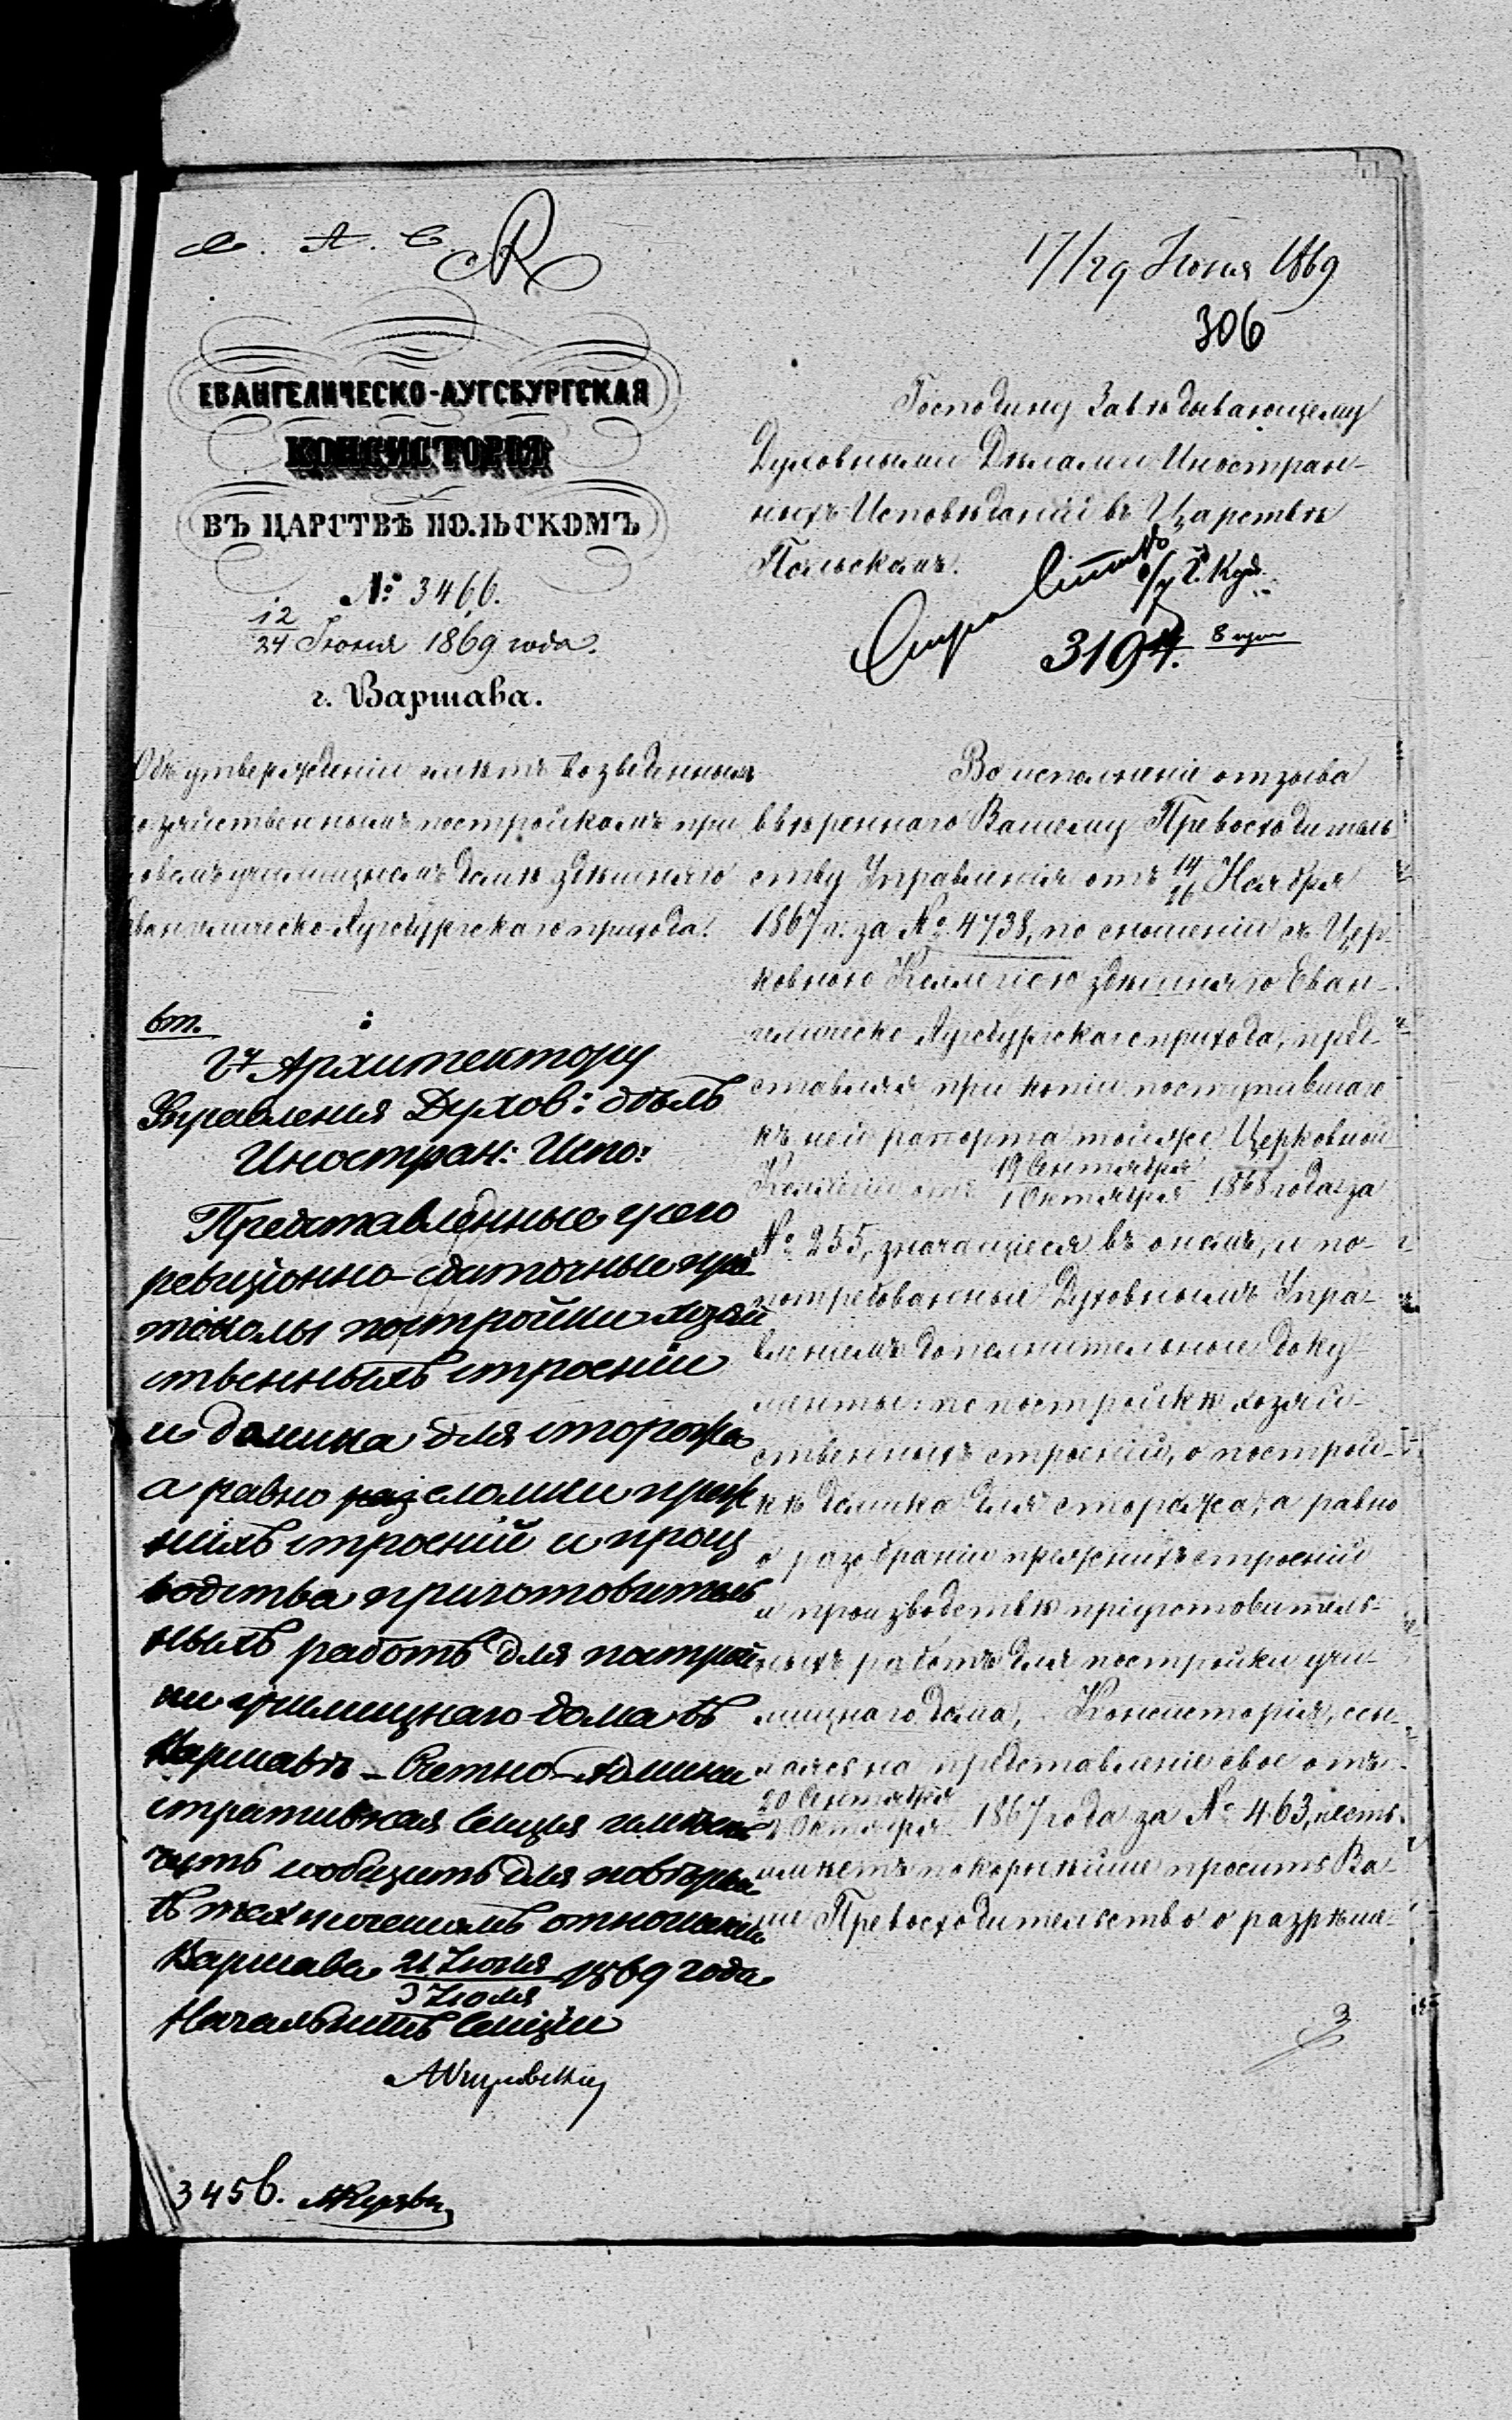 С. А. С.
17/29 Іюня 1869
306
ЕВАНГЕЛИЧЕСКО-АУГСБУРГСКАЯ
КОНСИСТОРІЯ
ВЪ ЦАРСТВѢ ПОЛЬСКОМЪ
№ 3466.
12/24 Іюня 1869 года.
г. Варшава.
Объ утвержденіи смѣтъ возведеннымъ
хозяйственнымъ постройкамъ при
новомъ училищномъ домѣ здѣшняго
Евангелическо-Аугсбургскаго прихода.
Господину Завѣдывающему
Духовными Дѣлами Иностран-
ныхъ Исповѣданій въ Царствѣ
Польскомъ.
3194.
Во исполненіе отзыва
ввѣреннаго Вашему Превосходитель
ству Управленія отъ 14/26 Ноября
1867 г. за № 4738, по сношеніи съ Цер-
ковною Коллегіею здѣшняго Еван-
гелическо Аугсбургскаго прихода, пред-
ставляя при копіи поступившаго
къ ней рапорта тойже Церковной
Коллегіи отъ 19 Сентября/1 Октября 1868 года за
№ 255, значащіеся въ ономъ, и по-
потребованные Духовнымъ Упра-
вленіемъ дополнительные доку-
менты: по постройкѣ хозяй-
ственныхъ строеній, о построй-
кѣ домика для сторожа, а равно
о разобраніи прежнихъ строеній
и производствѣ приготовитель-
ныхъ работъ для постройки учи-
лищнаго дома, Консисторія, ссы-
лаясь на представленіе свое отъ
20 Сентября/2 Октября 1867 года за № 463, честь
имѣетъ покорнѣйше просить Ва-
ше Превосходительство о разрѣше-
вт.
Гу Архитектору
Управления Духов: дѣлъ
Иностран: Испо:
Представленные у сего
ревизіонно-сдаточные про
токолы постройки хозяй
ственныхъ строеніи
и домика для сторожа
а равно разсломки преж
нихъ строеній и произ
водства приготовитель
ныхъ работъ для построй
ки училищнаго дома въ
Варшавѣ - Счетно-Админи
стративная Секція имѣетъ
честь сообщить для повѣрки
въ техническомъ отношеніи
Варшава 21 Іюня/3 Іюля 1869 года
Начальникъ Секціи
3456.